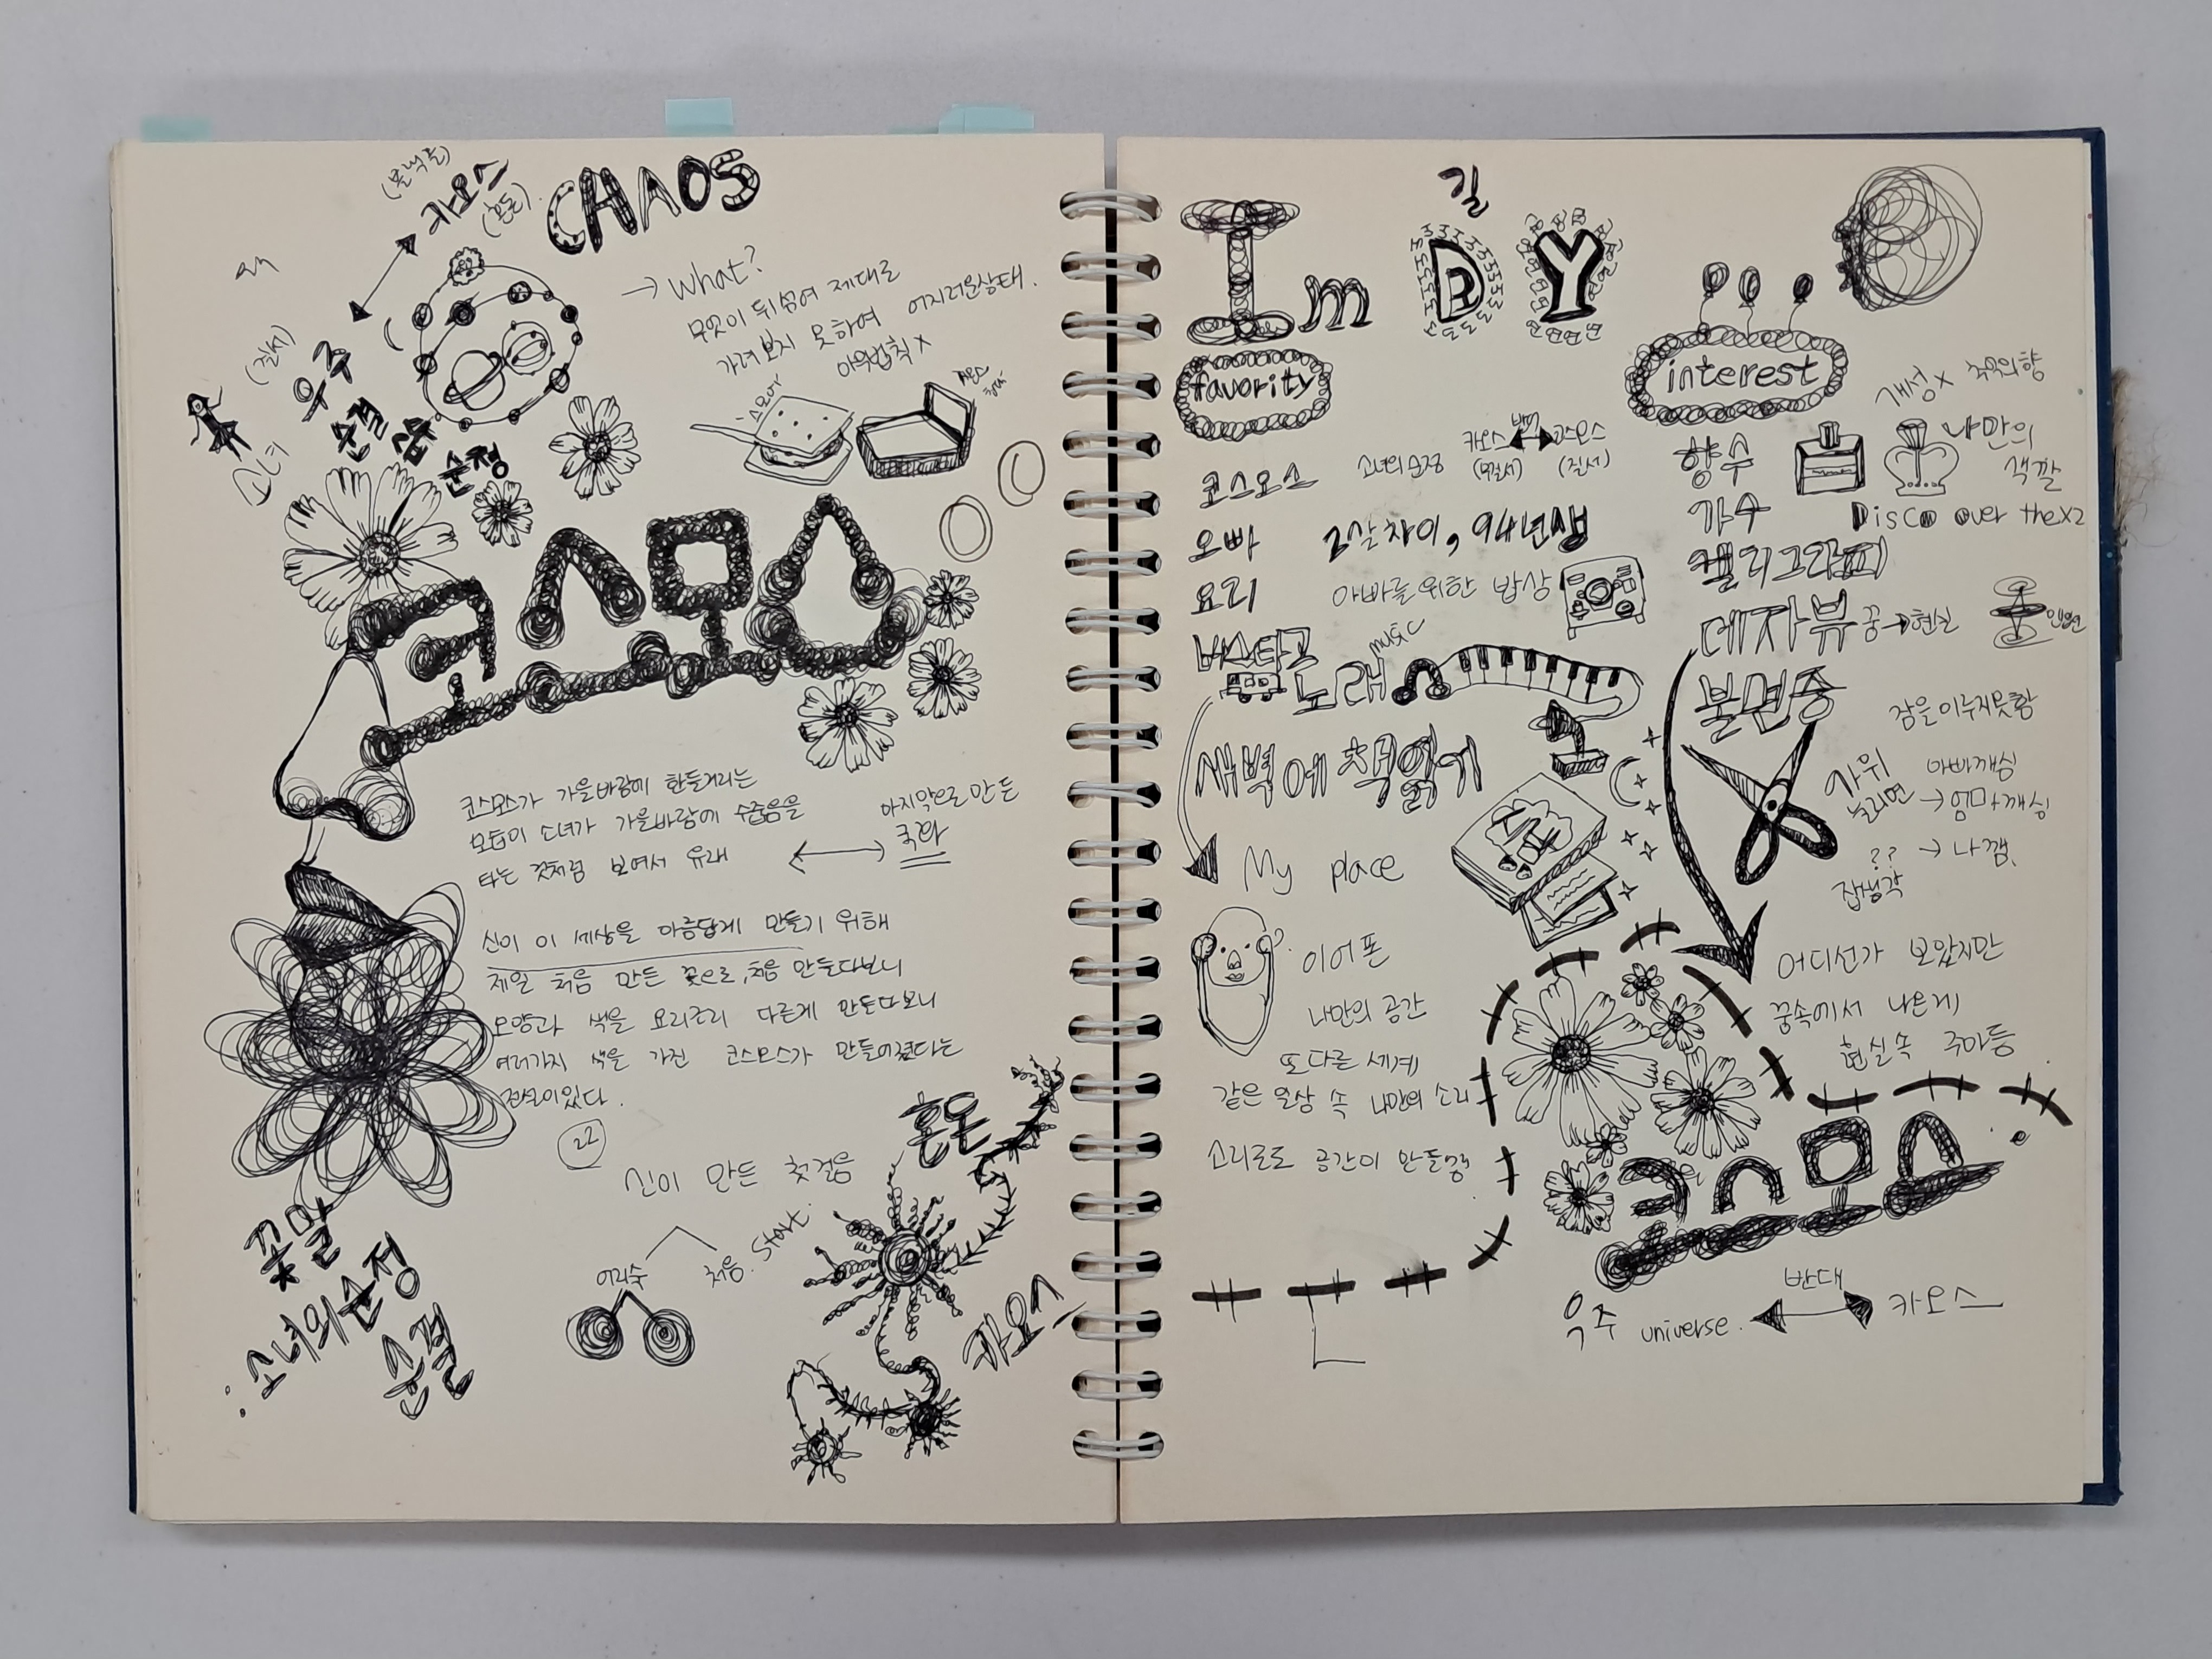 카오스
(혼돈)
CHAOS
→ What?
무엇이 뒤섞여 제대로
가려보지 못하여 어지러운상태.
(질서)
우주
순결
순정
소녀
스모어
코스모스
코스모스가 가을바람에 한들거리는
모습이 소녀가 가을바람에 수줍음을
타는 것처럼 보여서 유래
마지막으로 만든
국화
신이 이 세상을 아름답게 만들기 위해
제일 처음 만든 꽃으로, 처음 만들다보니
모양과 색을 요리조리 다르게 만든다보니
여러가지 색을 가진 코스모스가 만들어졌다는
전설이있다.
22
신이 만든 첫걸음
어리숙
처음. Start.
혼돈
카오스
꽃말
: 소녀의 순정
순결
길
Im DY
favority
코스모스 소녀의 순정 카오스 (무질서) 반대 코스모스 (질서)
오빠 2살차이, 94년생
요리 아빠를 위한 밥상
버스타고 노래 music
새벽에 책읽기
My place
이어폰
나만의 공간
또다른 세계
같은 일상 속 나만의 소리
소리로도 공간이 만들어짐
interest
개성x 추억의향
향수 나만의
색깔
가수 Disco over thex2
캘리그라피
데자뷰 꿈→현실
불면증
잠을이루지못함
가위
눌리면
아빠깨심
→ 엄마깨심
→ 나깸.
??
잡생각
어디선가 보았지만
꿈속에서 나온게
현실속 주마등
코스모스
우주 universe. 반대 카오스